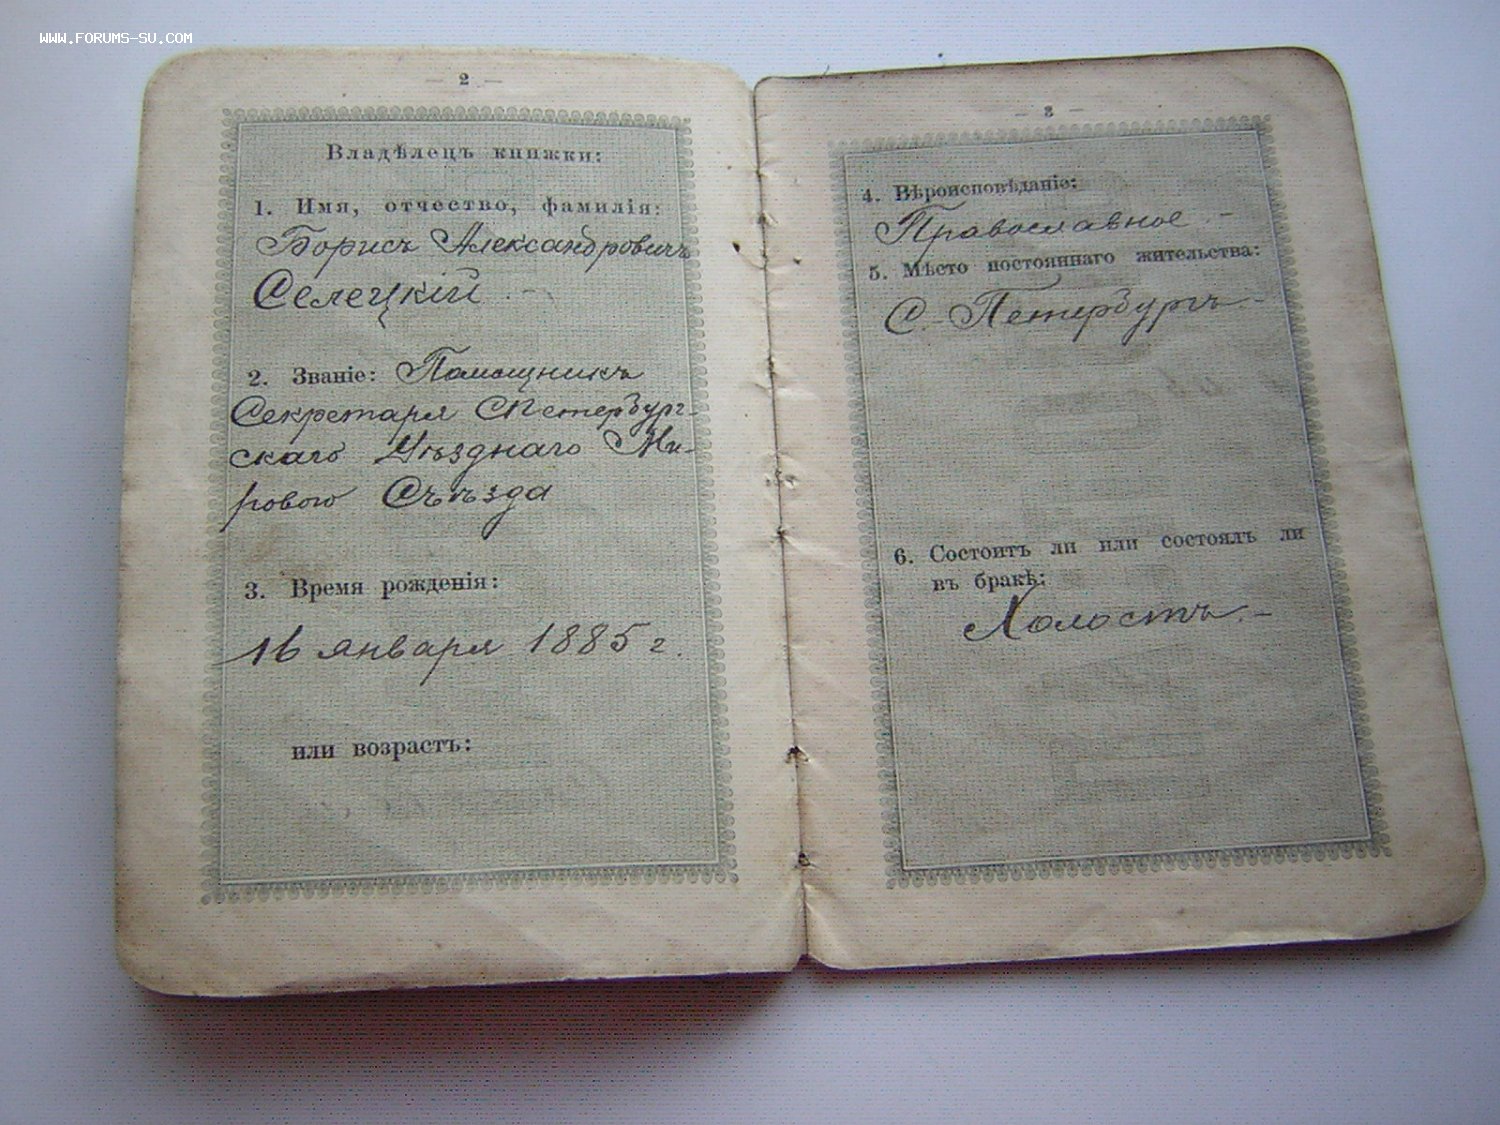 WWW.FORUMS-SU.COM
— 2 —
Владѣлецъ книжки:
1. Имя, отчество, фамилія:
Борисъ Александровичъ
Селецкій. -
2. Званіе: Помощникъ
Секретаря СПетербург-
скаго Уѣзднаго Ми-
рового Съѣзда
3. Время рожденія:
16 января 1885 г.
или возрастъ:
— 3 —
4. Вѣроисповѣданіе:
Православное. -
5. Мѣсто постояннаго жительства:
С.-Петербургъ. -
6. Состоитъ ли или состоялъ ли
въ бракѣ:
Холостъ. -